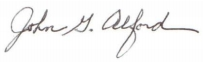 John G. Alford